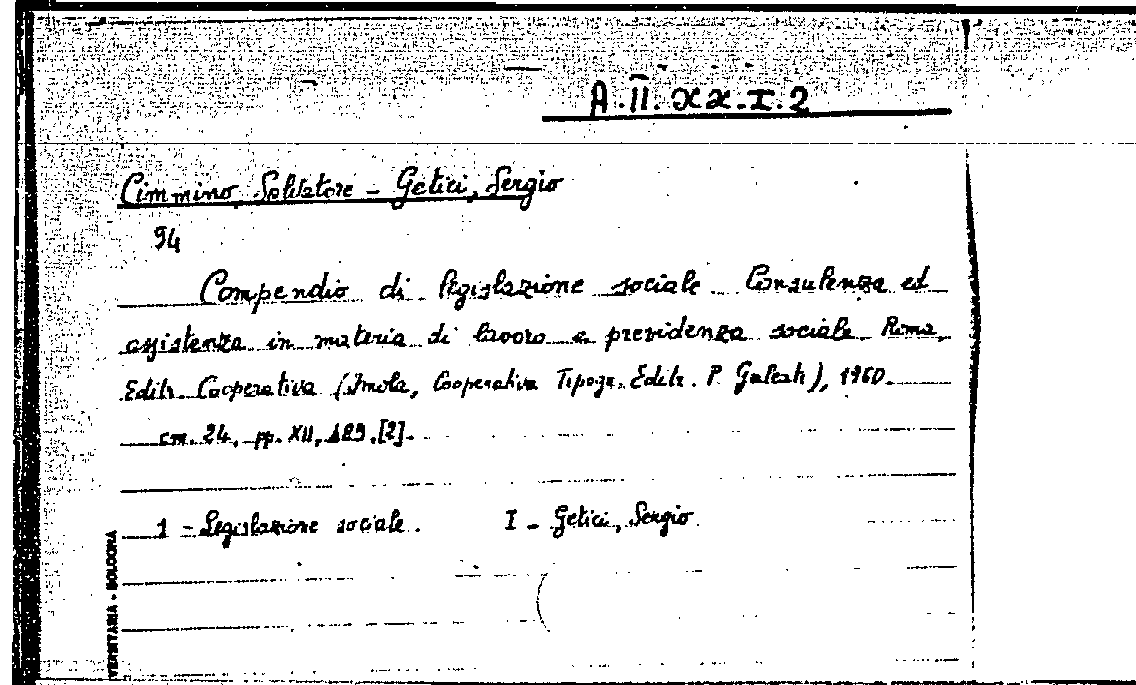 A.II.XX.I.2
Cimmino, Salvatore - Getici, Sergio
94
Compendio di legislazione sociale. Consulenza ed
assistenza in materia di lavoro e previdenza sociale Roma,
Editr. Cooperativa (Imola, Cooperativa Tipogr. Editr. P. Galeati), 1960.
cm. 24, pp. XII, 489, [2].
1 - Legislazione sociale. I - Getici, Sergio.
- BOLOGNA